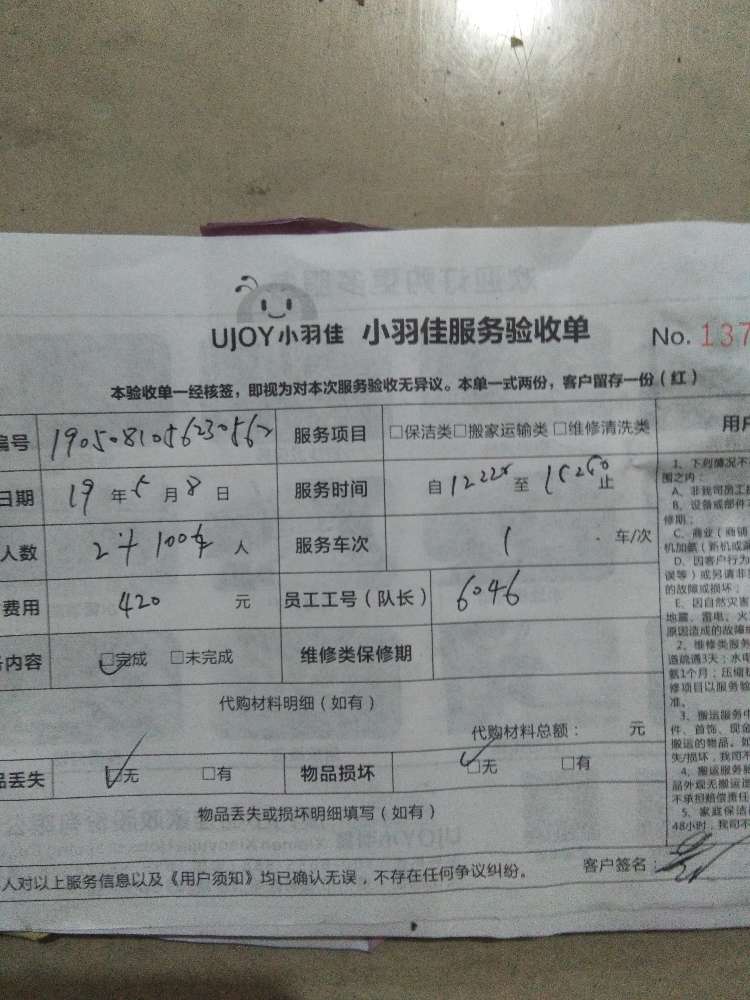 UJOY小羽佳 小羽佳服务验收单 No. 137
本验收单一经核签，即视为对本次服务验收无异议。本单一式两份，客户留存一份（红）
编号 1905081056230562 服务项目 □保洁类□搬家运输类□维修清洗类
日期 19 年 5 月 8 日 服务时间 自 至 止
人数 人 服务车次 1 车/次
费用 420 元 员工工号（队长） 6046
内容 □完成 □未完成 维修类保修期
代购材料明细（如有）
代购材料总额： 元
品丢失 □无 □有 物品损坏 □无 □有
物品丢失或损坏明细填写（如有）
人对以上服务信息以及《用户须知》均已确认无误，不存在任何争议纠纷。 客户签名：
用户
1、下列情况不
围之内：
A、非我司员工
B、设备或部件不
修期；
C、商业（商铺
机加氨（新机或漏
D、因客户行为
误等）或另请非
的故障或损坏；
E、因自然灾害
地震、雷电、火
原因造成的故障或
2、维修类服务
道疏通3天；水电
氨1个月；压缩机
修项目以服务验
准。
3、搬运服务中
件、首饰、现金
搬运的物品。如
失/损坏，我司不
4、搬运服务
品外观无搬运
不承担赔偿责任
5、家庭保洁
48小时，我司不